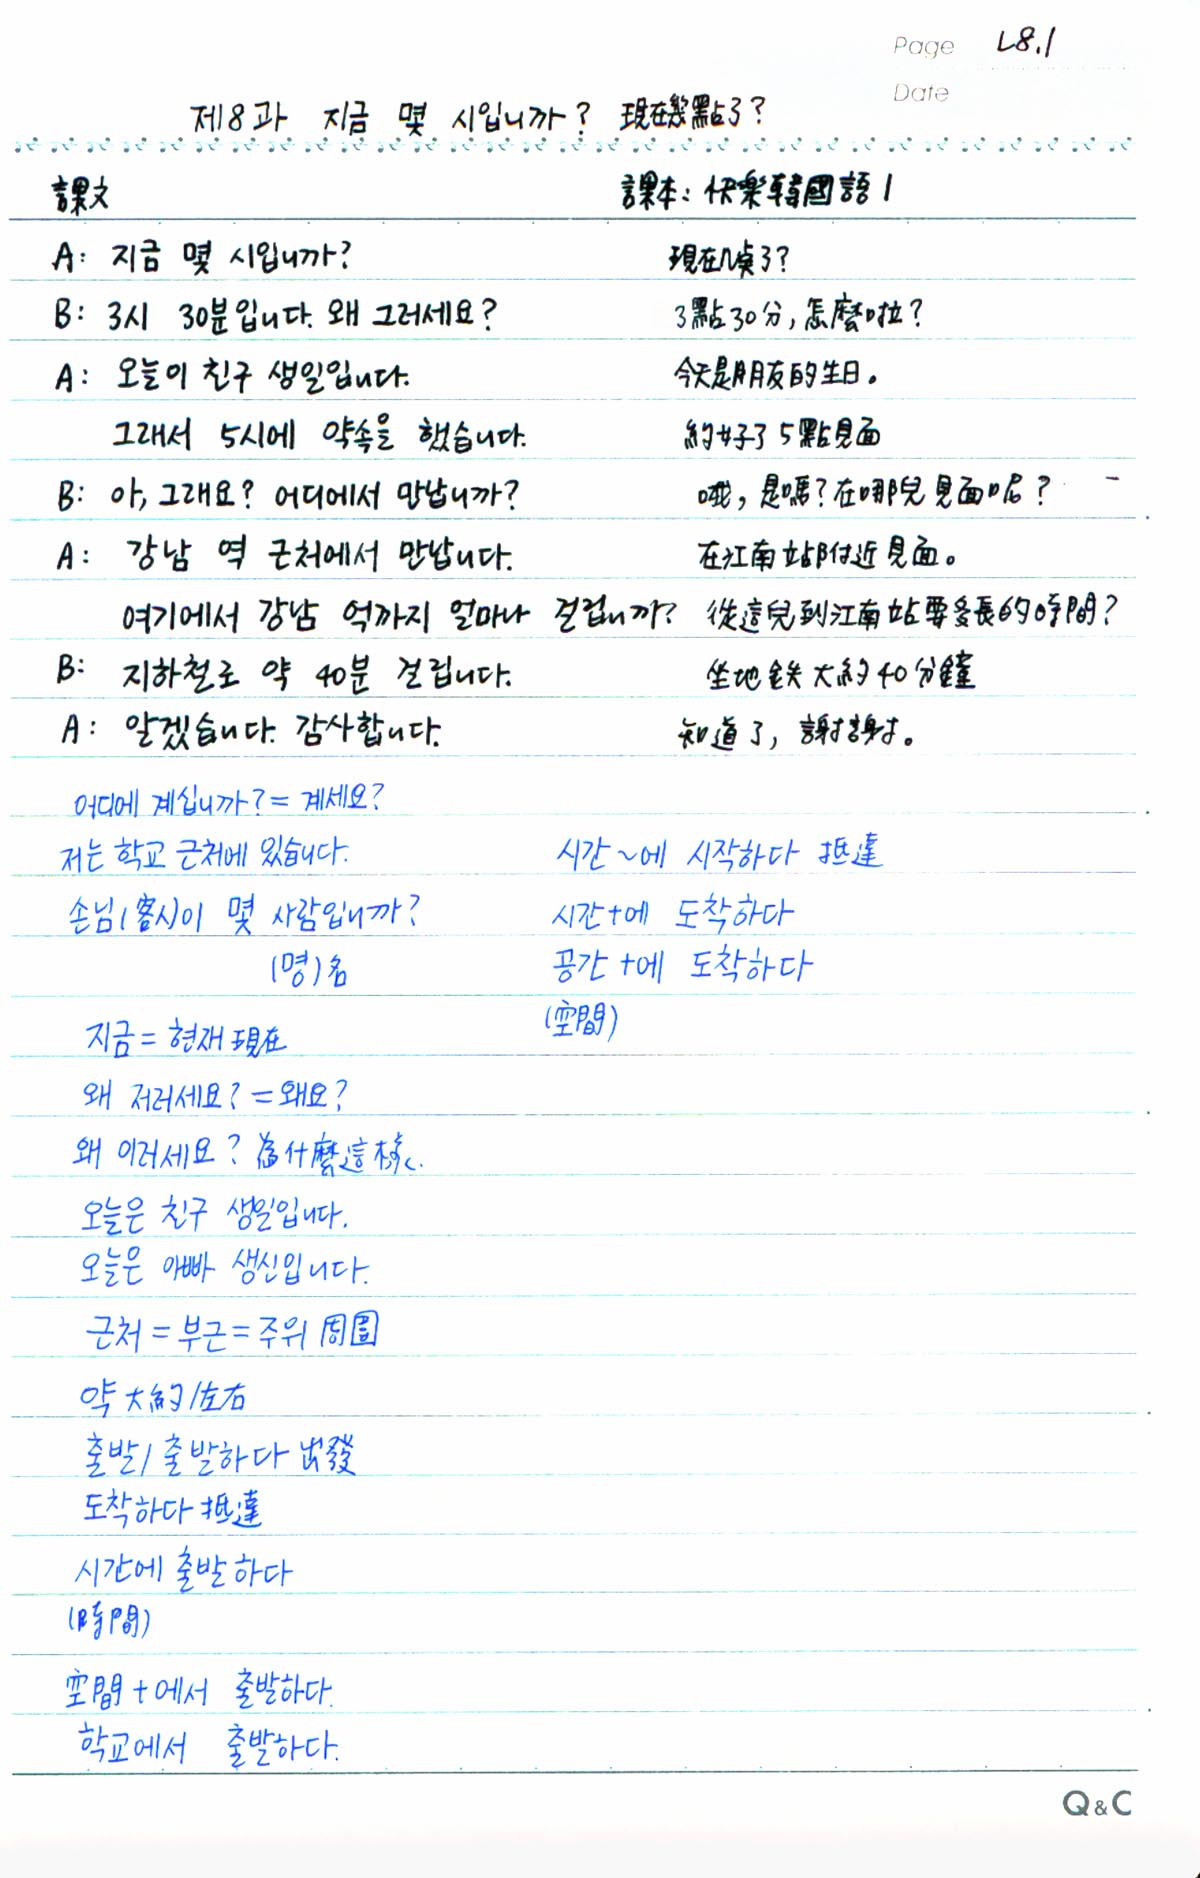 Page L8.1
Date
제8과 지금 몇 시입니까? 現在幾點了?
課文 課本: 快樂韓國語 1
A: 지금 몇 시입니까? 現在几点了?
B: 3시 30분입니다. 왜 그러세요? 3點30分, 怎麼啦?
A: 오늘이 친구 생일입니다. 今天是朋友的生日。
그래서 5시에 약속을 했습니다. 約好了5點見面
B: 아, 그래요? 어디에서 만납니까? 哦, 是嗎? 在哪兒見面呢?
A: 강남 역 근처에서 만납니다. 在江南站附近見面。
여기에서 강남 역까지 얼마나 걸립니까? 從這兒到江南站要多長的時間?
B: 지하철로 약 40분 걸립니다. 坐地鉄大約40分鐘
A: 알겠습니다. 감사합니다. 知道了, 謝謝。
어디에 계십니까? = 계세요?
저는 학교 근처에 있습니다. 시간~에 시작하다 抵達
손님(客人)이 몇 사람입니까? 시간+에 도착하다
(명)名 공간+에 도착하다
(空間)
지금 = 현재 現在
왜 저러세요? = 왜요?
왜 이러세요? 為什麼這樣.
오늘은 친구 생일입니다.
오늘은 아빠 생신입니다.
근처 = 부근 = 주위 周圍
약 大約/左右
출발/출발하다 出發
도착하다 抵達
시간에 출발하다
(時間)
空間+에서 출발하다.
학교에서 출발하다.
Q&C